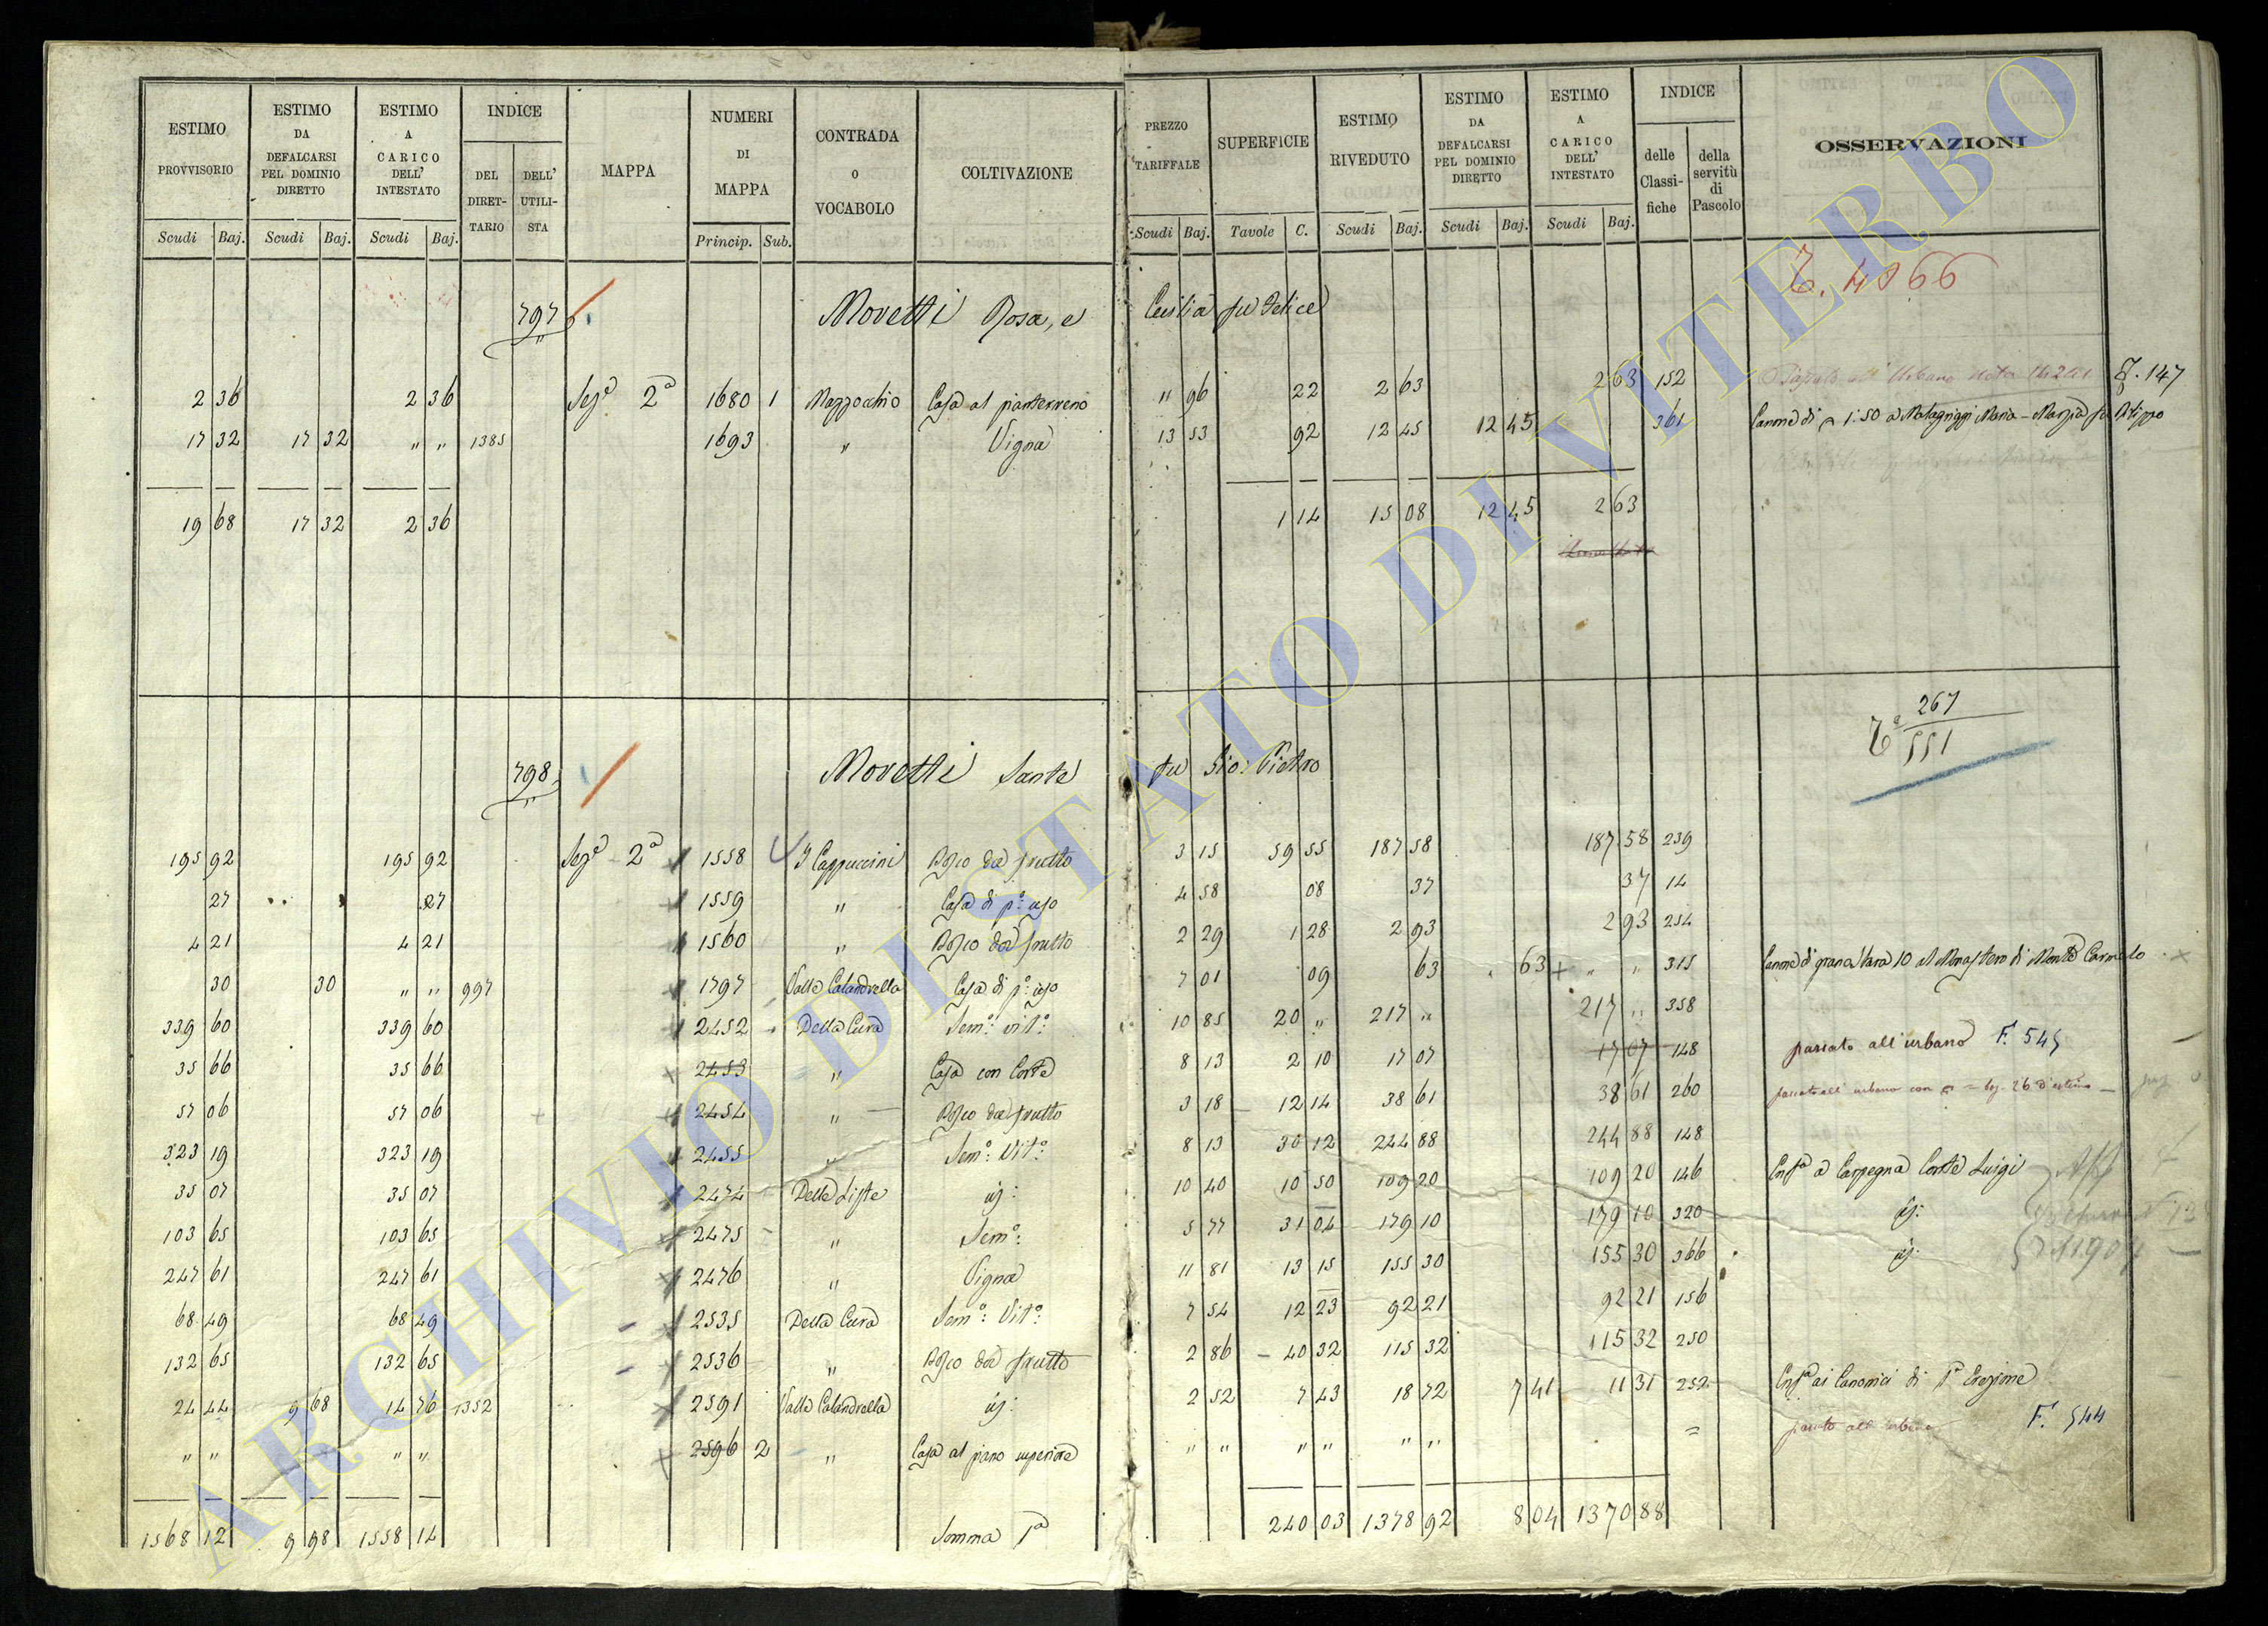 ESTIMO PROVVISORIO | ESTIMO DA DEFALCARSI PEL DOMINIO DIRETTO | ESTIMO A CARICO DELL' INTESTATO | INDICE DEL DIRETTARIO | DELL' UTILISTA | MAPPA | NUMERI DI MAPPA | CONTRADA O VOCABOLO | COLTIVAZIONE | PREZZO TARIFFALE | SUPERFICIE | ESTIMO RIVEDUTO | ESTIMO DA DEFALCARSI PEL DOMINIO DIRETTO | ESTIMO A CARICO DELL' INTESTATO | INDICE delle Classifiche | della servitù di Pascolo | OSSERVAZIONI
Scudi Baj. | Scudi Baj. | Scudi Baj. | Princip. Sub. | Scudi Baj. | Tavole C. | Scudi Baj. | Scudi Baj. | Scudi Baj.
797 Moretti Rosa, e Cecilia fu Felice
2 36 | 2 36 | Sez.ª 2ª | 1680 1 | Mazzocchio | Casa al pianterreno | " 96 | 22 | 2 63 | 2 63 | 152 | F. 147
17 32 | 17 32 | " " | 1385 | 1693 | " | Vigna | 13 53 | 92 | 12 45 | 12 45 | 361 | Canone di 1:50 a Malagriggi Maria-Marzia fu Filippo
19 68 | 17 32 | 2 36 | 1 14 | 15 08 | 12 45 | 2 63
267
T.ª 551
798 Moretti Sante fu Gio: Pietro
195 92 | 195 92 | Sez.ª 2ª | 1558 | I Cappuccini | Bosco da frutto | 3 15 | 59 55 | 187 58 | 187 58 | 239
27 | 27 | 1559 | " | Casa di p.º uso | 4 58 | 08 | 37 | 37 | 14
4 21 | 4 21 | 1560 | " | Bosco da frutto | 2 29 | 1 28 | 2 93 | 2 93 | 254
30 | 30 | " " | 997 | 1797 | Valle Calandrella | Casa di p.º uso | 7 01 | 09 | 63 | 63 | " " | 315 | Canone di grano Stara 10 al Monastero di Monte Carmelo
339 60 | 339 60 | 2452 | Della Cura | Sem.º: vit.º: | 10 85 | 20 " | 217 " | 217 " | 358
35 66 | 35 66 | 2453 | " | Casa con Corte | 8 13 | 2 10 | 17 07 | 17 07 | 148 | passato all'urbano F. 545
57 06 | 57 06 | 2454 | " | Bosco da frutto | 3 18 | 12 14 | 38 61 | 38 61 | 260 | passato all'urbano con baj. 26 d'estimo
323 19 | 323 19 | 2455 | " | Sem.º: Vit.º: | 8 13 | 30 12 | 244 88 | 244 88 | 148
35 07 | 35 07 | 2474 | Delle Liste | id: | 10 40 | 10 50 | 109 20 | 109 20 | 146 | Enf.ª a Carpegna Conte Luigi
103 65 | 103 65 | 2475 | " | Sem.º: | 5 77 | 31 04 | 179 10 | 179 10 | 320 | id:
247 61 | 247 61 | 2476 | " | Vigna | 11 81 | 13 15 | 155 30 | 155 30 | 366 | id:
68 49 | 68 49 | 2535 | Della Cura | Sem.º: Vit.º: | 7 54 | 12 23 | 92 21 | 92 21 | 156
132 65 | 132 65 | 2536 | " | Bosco da frutto | 2 86 | 40 32 | 115 32 | 115 32 | 250
24 44 | 9 68 | 14 76 | 1352 | 2591 | Valle Calandrella | id: | 2 52 | 7 43 | 18 72 | 7 41 | 11 31 | 252 | Enf.ª ai Canonici di 1ª Erezione
" " | " " | 2596 2 | " | Casa al piano superiore | " " | " " | " " | = | passato all'urbano F. 544
1568 12 | 9 98 | 1558 14 | Somma 1ª | 240 03 | 1378 92 | 8 04 | 1370 88
ARCHIVIO DI STATO DI VITERBO